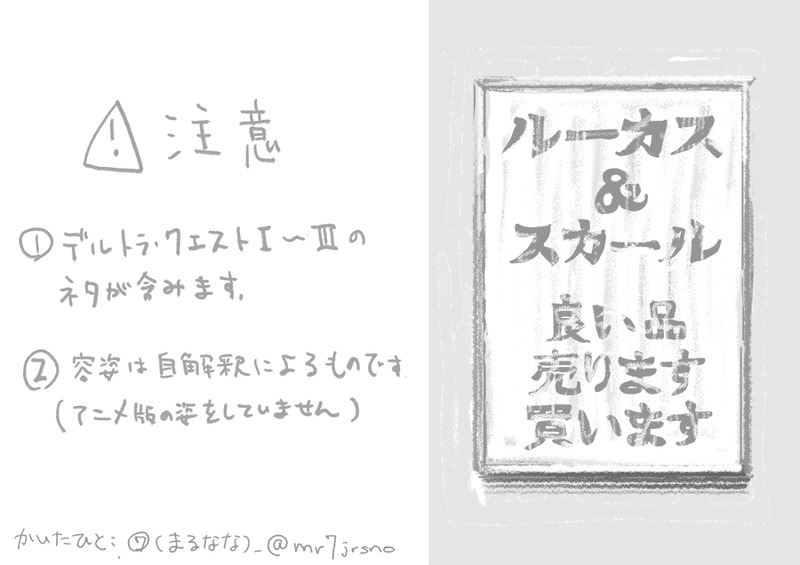 注意
① デルトラ・クエストⅠ〜Ⅲの
ネタが含みます。
② 容姿は自解釈によるものです
(アニメ版の姿をしていません)
かいたひと: ⑦(まるなな)_@mr7jrsno
ルーカス
&
スカール
良い品
売ります
買います